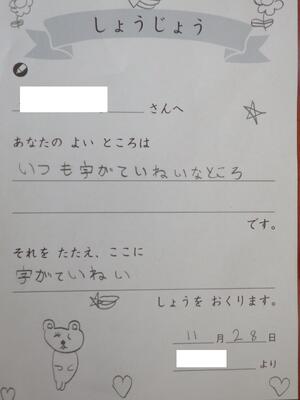 しょうじょう
さんへ
あなたの よい ところは
いつも字がていねいなところ
です。
それを たたえ、ここに
字がていねい
しょうを おくります。
11月28日
より